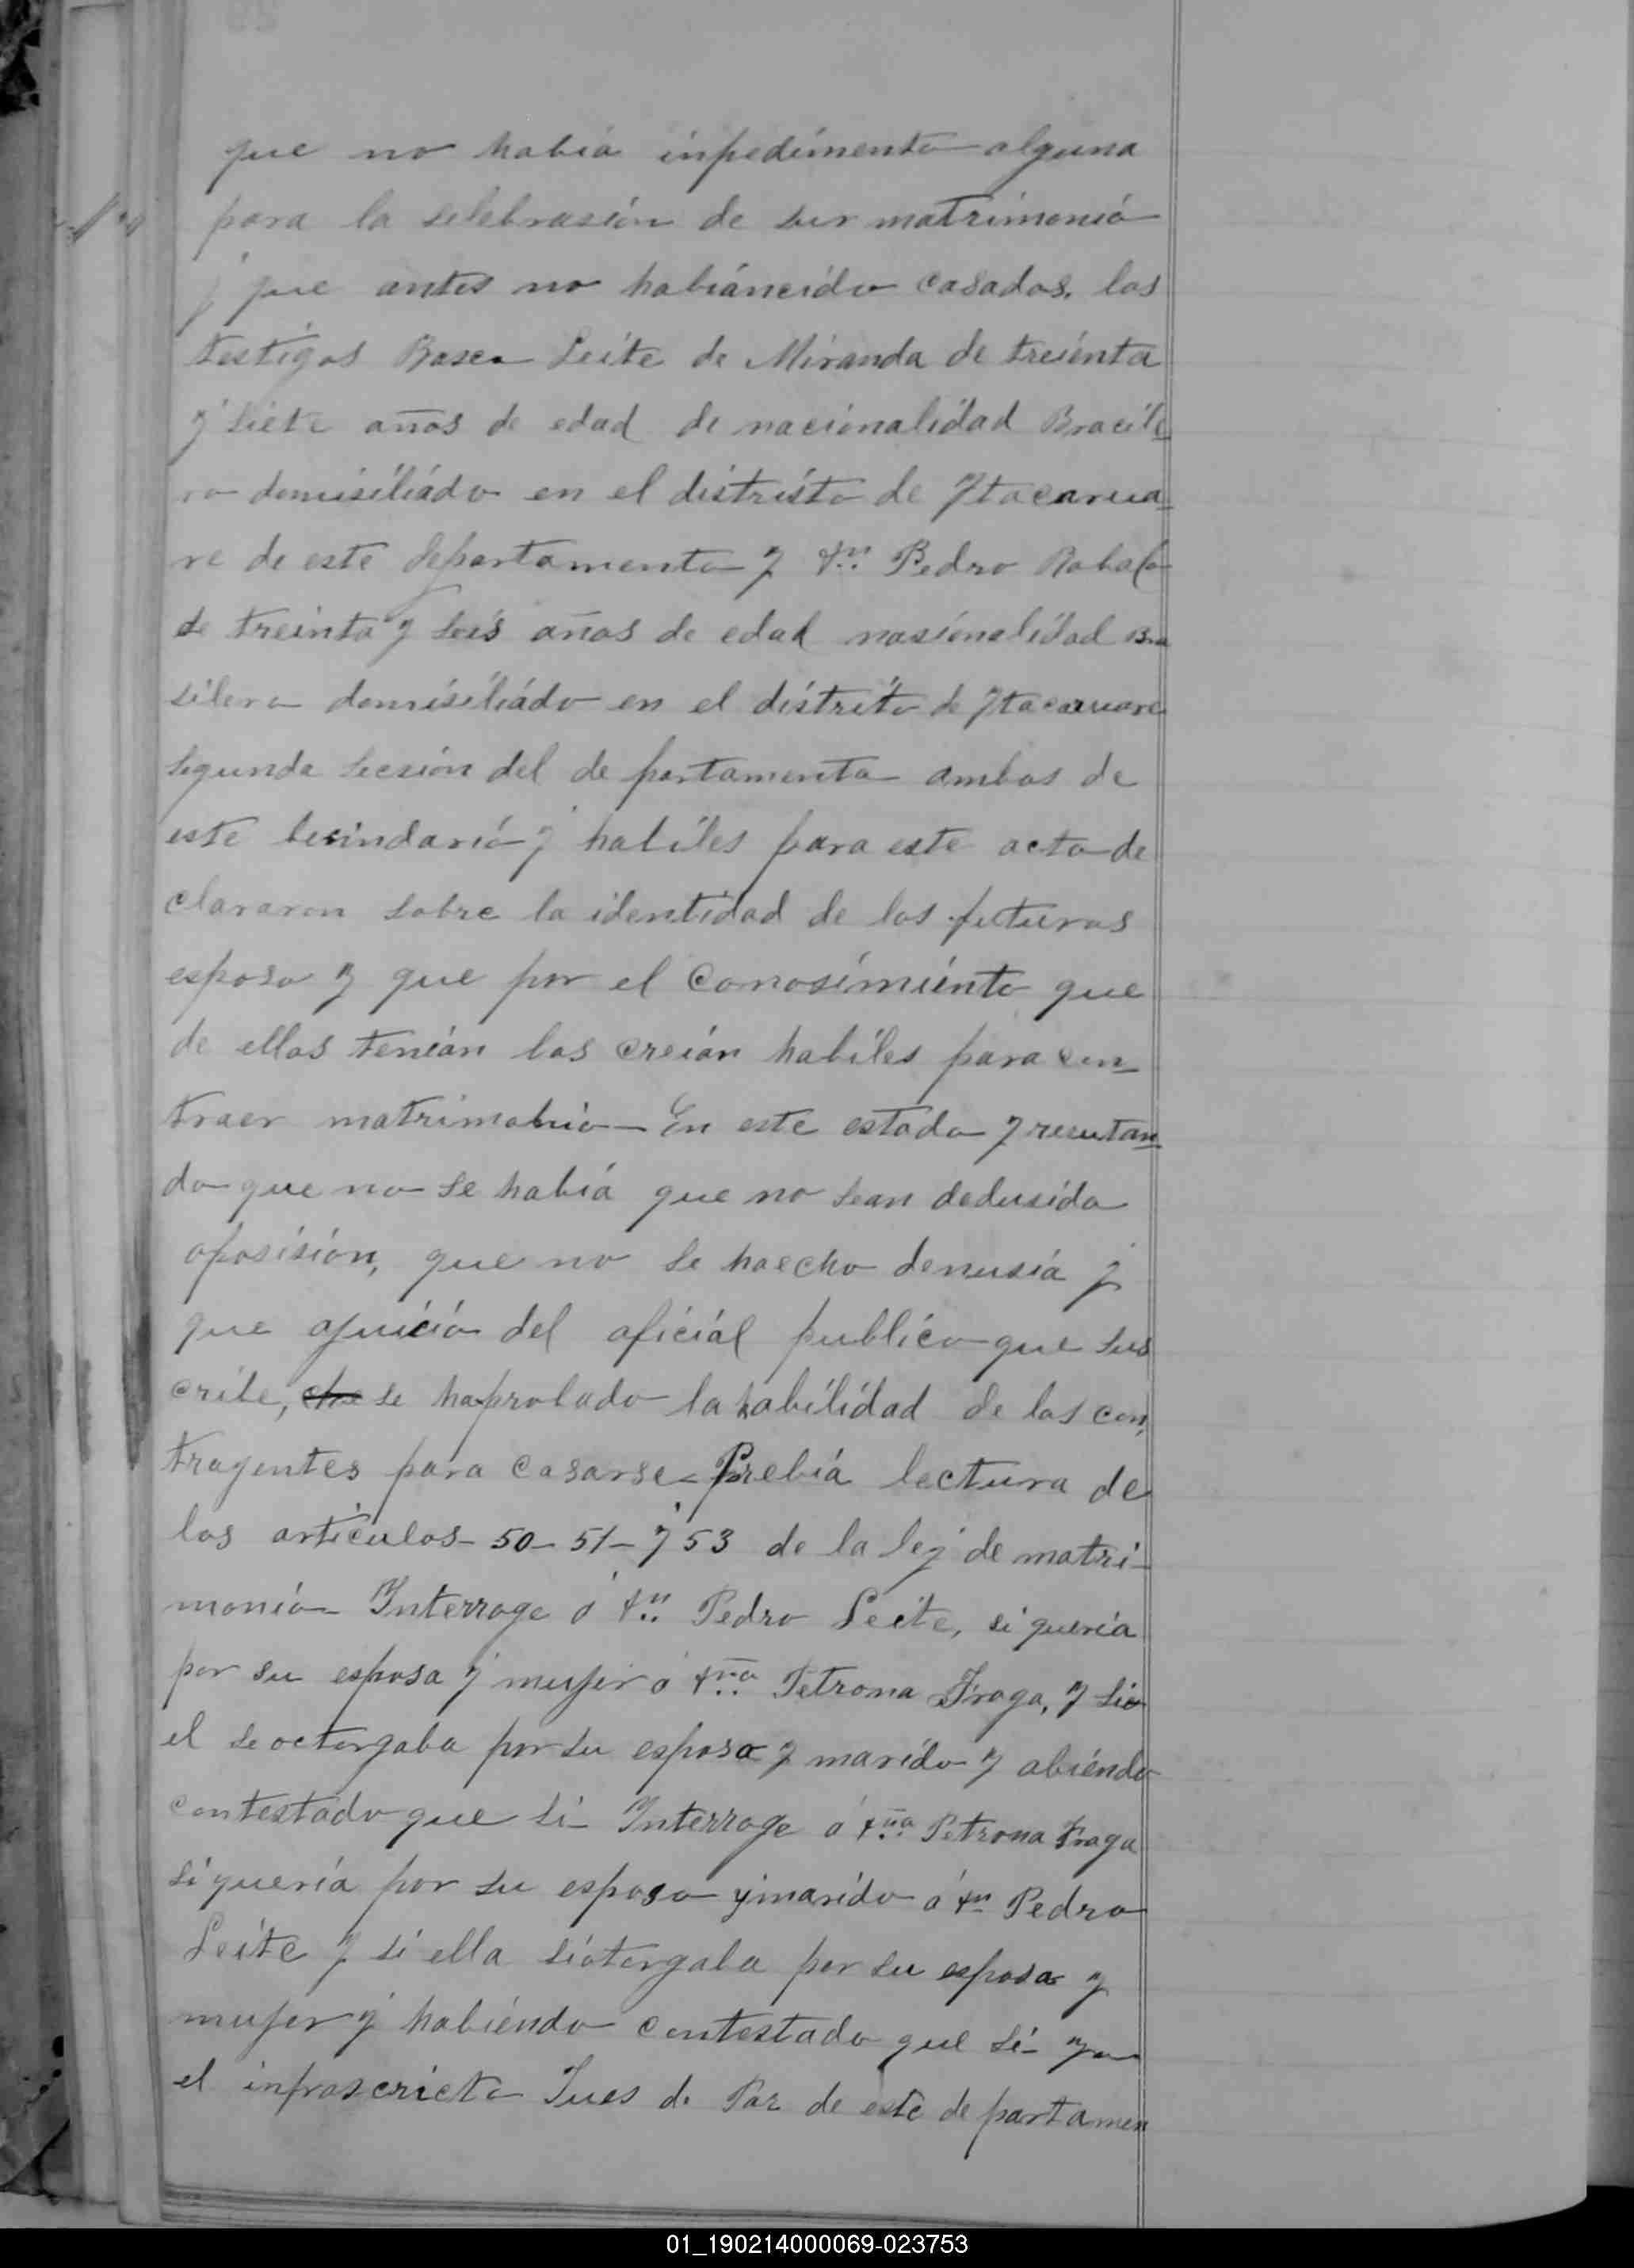 que no habia inpedimento alguna
para la selebrasión de sus matrimonió
y que antes no habiáncido casados. los
testigos Leite de Miranda de treinta
y siete años de edad de nacionalidad Bracile
ro domisiliádo en el distristo de Ytacarua-
re de este departamento y Dn Pedro
de treinta y seis años de edad nasionalidad Bra
silero domisiliádo en el distrito de Ytacaruare
segunda secsión del departamento ambos de
este besindarió y habiles para este acto de
clararon sobre la identidad de los futuros
esposo y que por el conosimiento que
de ellos tenián los creián habiles para con-
traer matrimonio En este estado y resultan-
do que no se habiá que no sean dedusido
oposisión, que no se haecho denusia y
que ajuició del oficiál publico que sus
cribe, se haprobado la habilidad de los con,
trayentes para casarse - Prebiá lectura de
los articulos - 50 - 51 - y 53 de la ley de matri-
monio Interroge á Dn Pedro Leite, si queria
por su esposa y mujer á Dña Petrona Fraga, y sió
el se octorgaba por su esposo y marido y abiéndo
contestado que si - Interroge á Dña Petrona Fraga
si queriá por su esposo y marido á Dn Pedro
Leite y si ella siotorgaba por su esposa y
mujer y habiéndo contestado que si - yo
el infrascricto Jues de Paz de este departamen